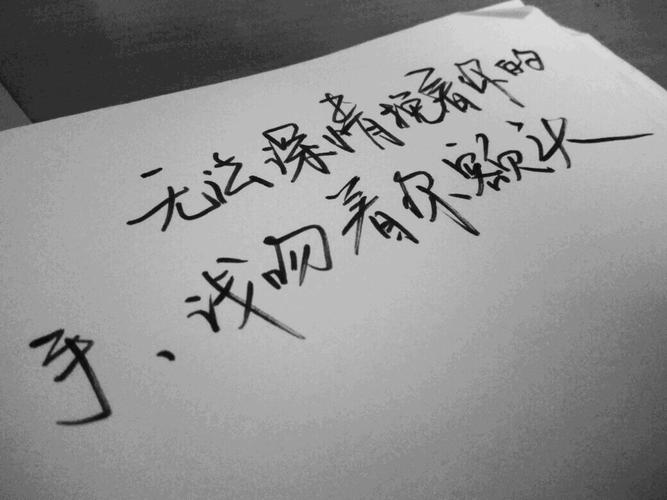 无法深情挽着你的
手、浅吻着你额头